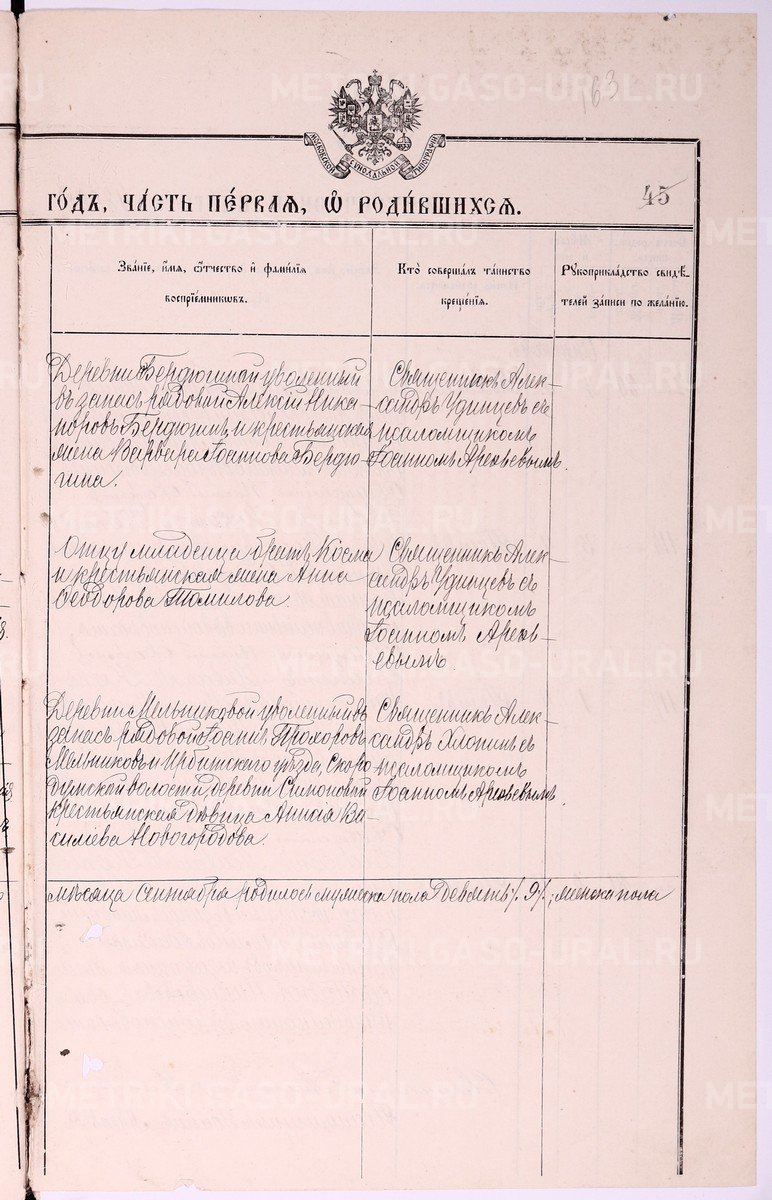 METRIKI.GASO-URAL.RU
163
МОСКОВСКОЙ СѴНОДАЛЬНОЙ ТИПОГРАФІИ
ГО́ДЪ, ЧА́СТЬ ПЕ́РВАЯ, Ѽ РОДИ́ВШИХСЯ.
45
Зва́нїе, и҆́мѧ, ѻ҆́тчество и҆ фами́лїѧ
воспрїе́мниковъ.
Кто̀ соверша́лъ та́инство
креще́нїѧ.
Рꙋкоприкла́дство свидѣ́-
телей за́писи по жела́нїю.
Деревни Бердюгиной уволенный
въ запасъ рядовой Алексій Ника-
норовъ Бердюгинъ и крестьянская
жена Варвара Іоаннова Бердю-
гина.
Священникъ Алек-
сандръ Удинцевъ съ
псаломщикомъ
Іоанномъ Арефьевымъ.
Отцу младенца братъ Косма
и крестьянская жена Анна
Ѳеодорова Томилова.
Священникъ Алек-
сандръ Удинцевъ съ
псаломщикомъ
Іоанномъ Арефь-
евымъ.
Деревни Мельниковой уволенный въ
запасъ рядовой Іоаннъ Прохоровъ
Мельниковъ и Ирбитского уѣзда, Скоро-
думской волости, деревни Симоновой
крестьянская дѣвица Анисія Ва-
силіева Новогородова.
Священникъ Алек-
сандръ Хлопинъ съ
псаломщикомъ
Іоанномъ Арефьевымъ.
мѣсяца сентября родилось мужеска пола девять /. 9 /. ; женска пола